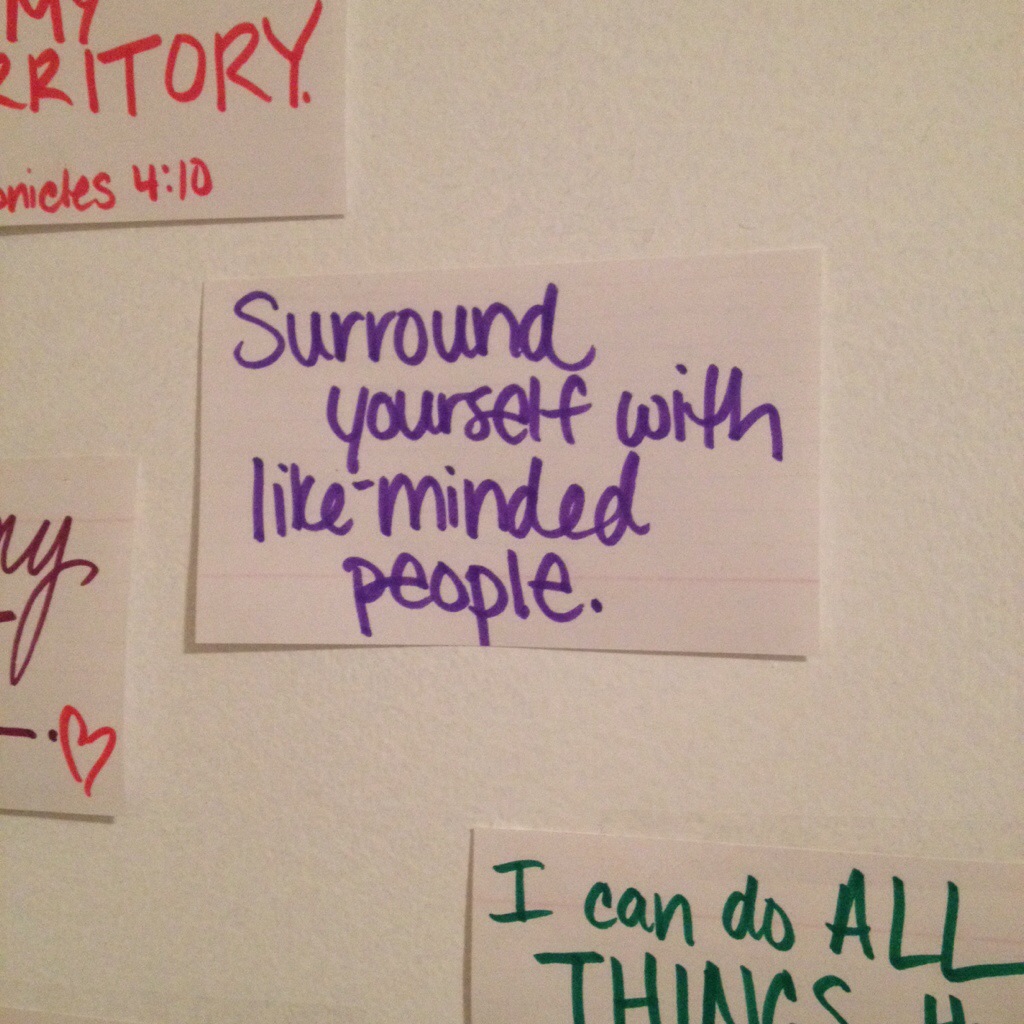 MY
RRITORY.
onicles 4:10
Surround
yourself with
like-minded
people.
ny
I can do ALL
THINGS